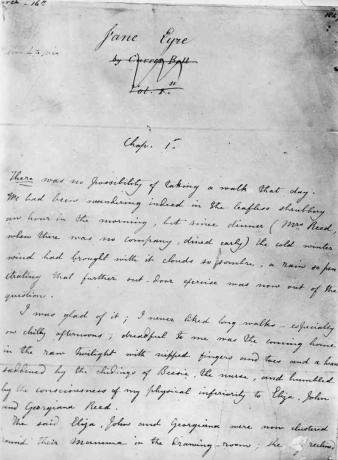 16th
Jane Eyre
by Currer Bell
Vol. 1st
Chap. 1.
There was no possibility of taking a walk that day.
We had been wandering indeed in the leafless shrubbery
an hour in the morning, but since dinner (Mrs Reed,
when there was no company, dined early) the cold winter
wind had brought with it clouds so sombre, a rain so pene
trating that further out-door exercise was now out of the
question.
I was glad of it; I never liked long walks - especially
on chilly afternoons; dreadful to me was the coming home
in the raw twilight with nipped fingers and toes and a heart
saddened by the chidings of Bessie, the nurse, and humbled
by the consciousness of my physical inferiority to Eliza, John
and Georgiana Reed.
The said Eliza, John and Georgiana were now clustered
round their Mamma in the drawing-room; she reclined